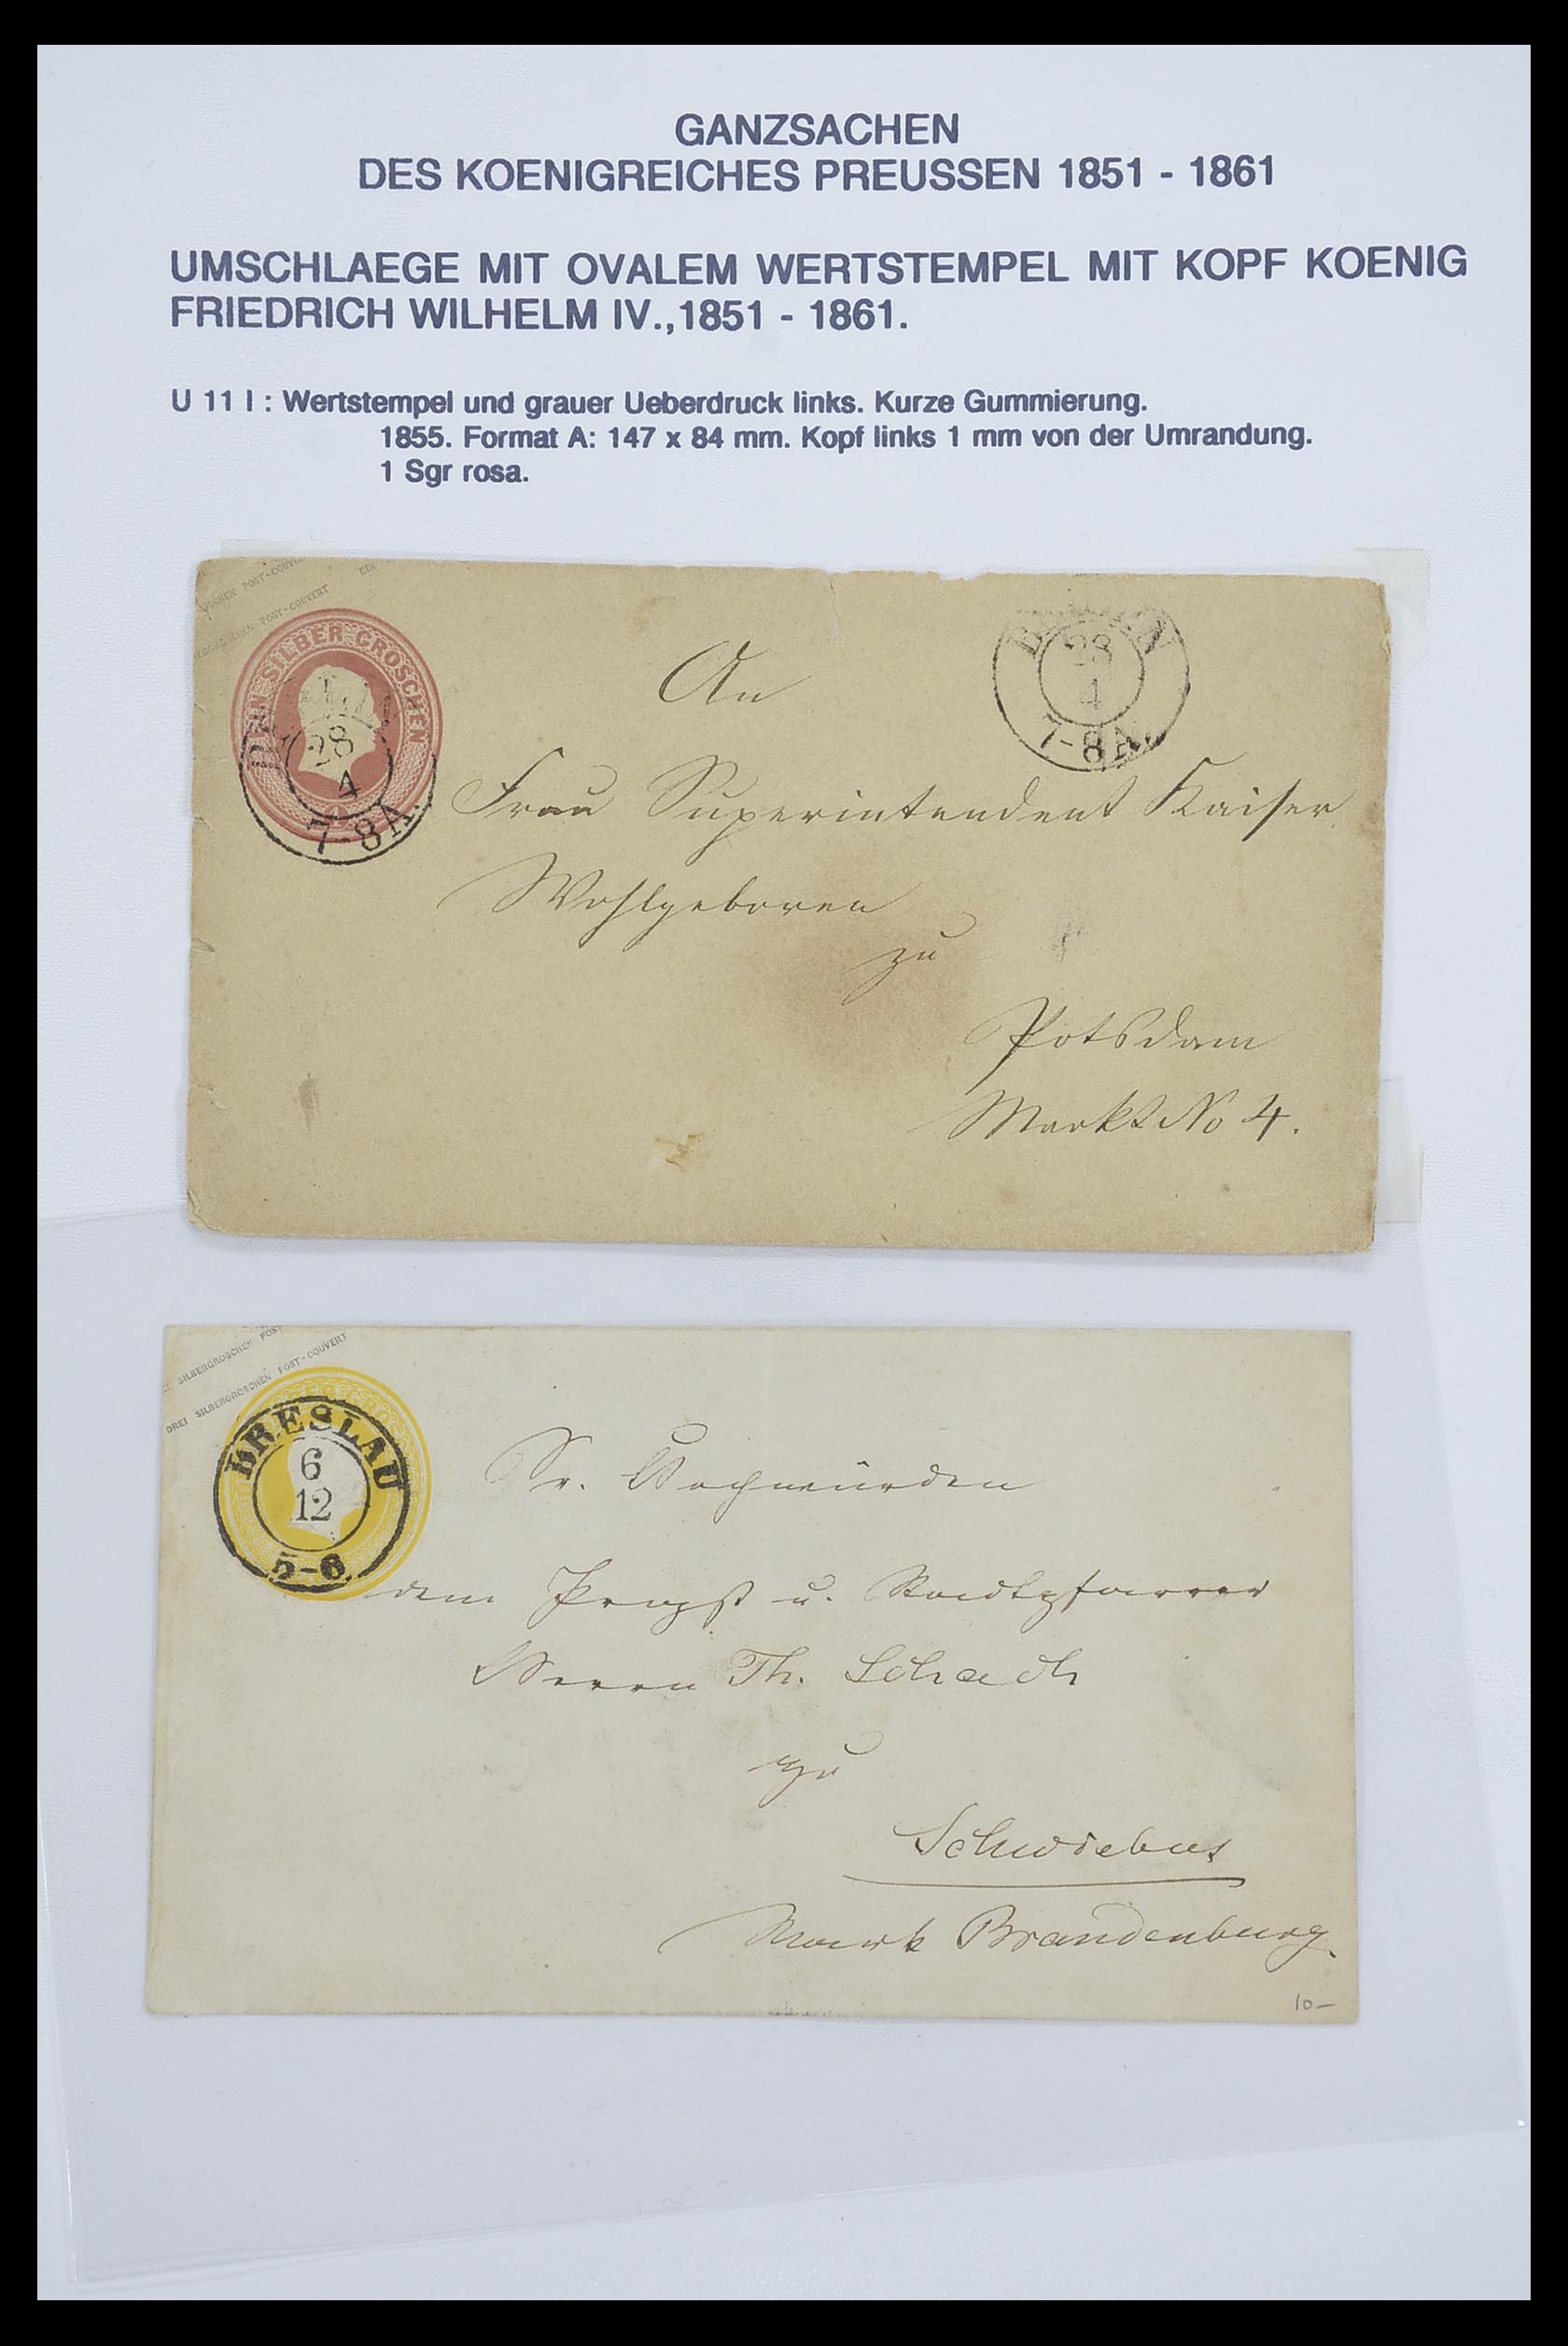 GANZSACHEN
DES KOENIGREICHES PREUSSEN 1851 - 1861
UMSCHLAEGE MIT OVALEM WERTSTEMPEL MIT KOPF KOENIG
FRIEDRICH WILHELM IV.,1851 - 1861.
U 11 I : Wertstempel und grauer Ueberdruck links. Kurze Gummierung.
1855. Format A: 147 x 84 mm. Kopf links 1 mm von der Umrandung.
1 Sgr rosa.
POST-COUVERT
POST-COUVERT
EIN SILBER GROSCHEN
28
4
7-8A
28
4
7-8A
An
Frau Superintendent Kaiser
Wohlgeboren
zu
Potsdam
Markt No 4.
SILBERGROSCHEN POST
DREI SILBERGROSCHEN POST-COUVERT
BRESLAU
6
12
5-6
Sr. Hochwürden
dem Propst u. Stadtpfarrer
Herrn Th. Schadh
zu
Schwiebus
Mark Brandenburg.
10-